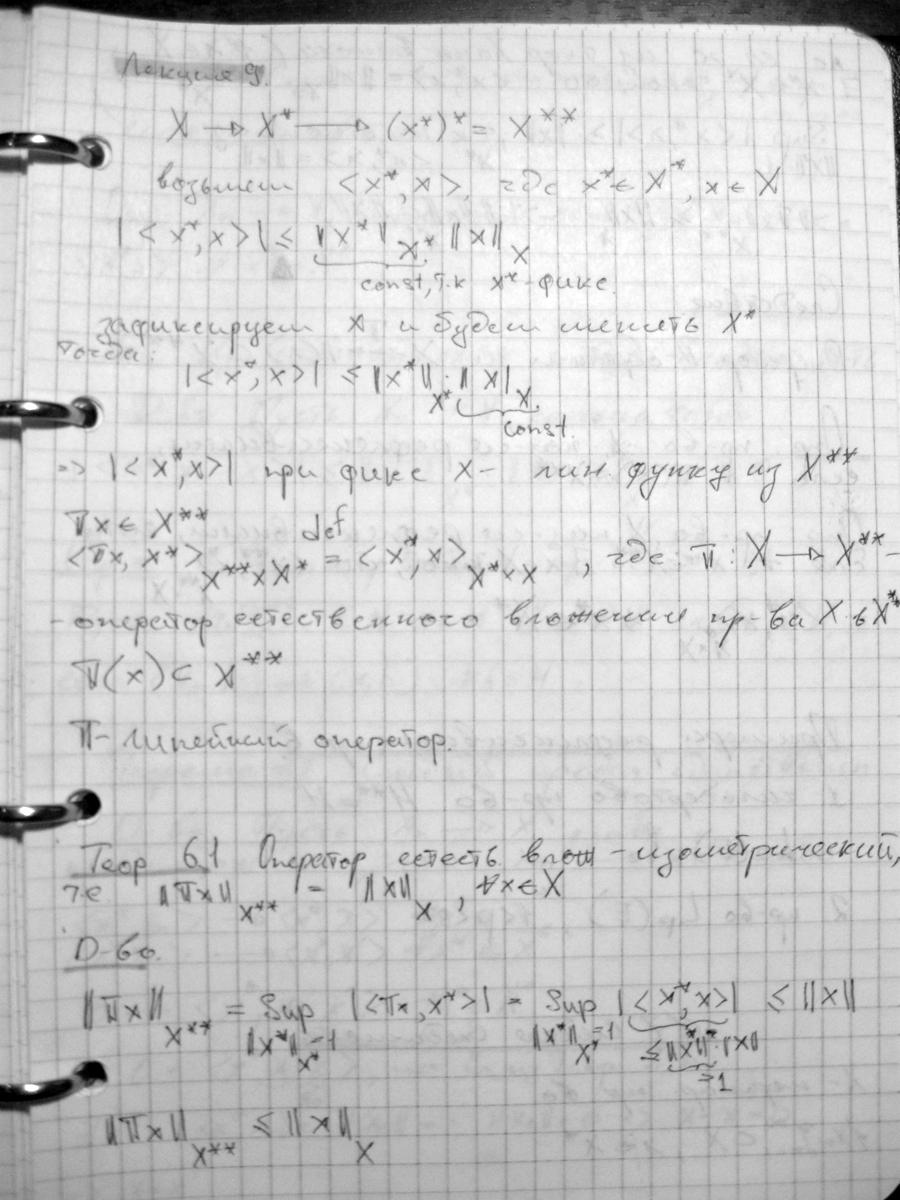 Лекция 9.
X → X* → (x*)* = X**
возьмем <x*, x>, где x* ∈ X*, x ∈ X
|<x*, x>| ≤ ‖x*‖_X* ‖x‖_X
const, т.к x* - фикс.
зафиксируем x и будем менять x*
Тогда:
|<x*, x>| ≤ ‖x*‖_X* · ‖x‖_X.
const.
=> |<x*, x>| при фикс x - лин. функц из X**
πx ∈ X**
<πx, x*>_X**×X* =def <x*, x>_X*×X , где π: X → X** -
- оператор естественного вложения пр-ва X в X**
π(x) ⊂ X**
π - линейный оператор.
Теор 6.1 Оператор естеств. влож - изометрический,
т.е ‖πx‖_X** = ‖x‖_X , ∀x ∈ X
D-во.
‖πx‖_X** = sup_‖x*‖_X*=1 |<πx, x*>| = sup_‖x*‖_X*=1 |<x*, x>| ≤ ‖x‖
≤ ‖x*‖* · ‖x‖
=1
‖πx‖_X** ≤ ‖x‖_X